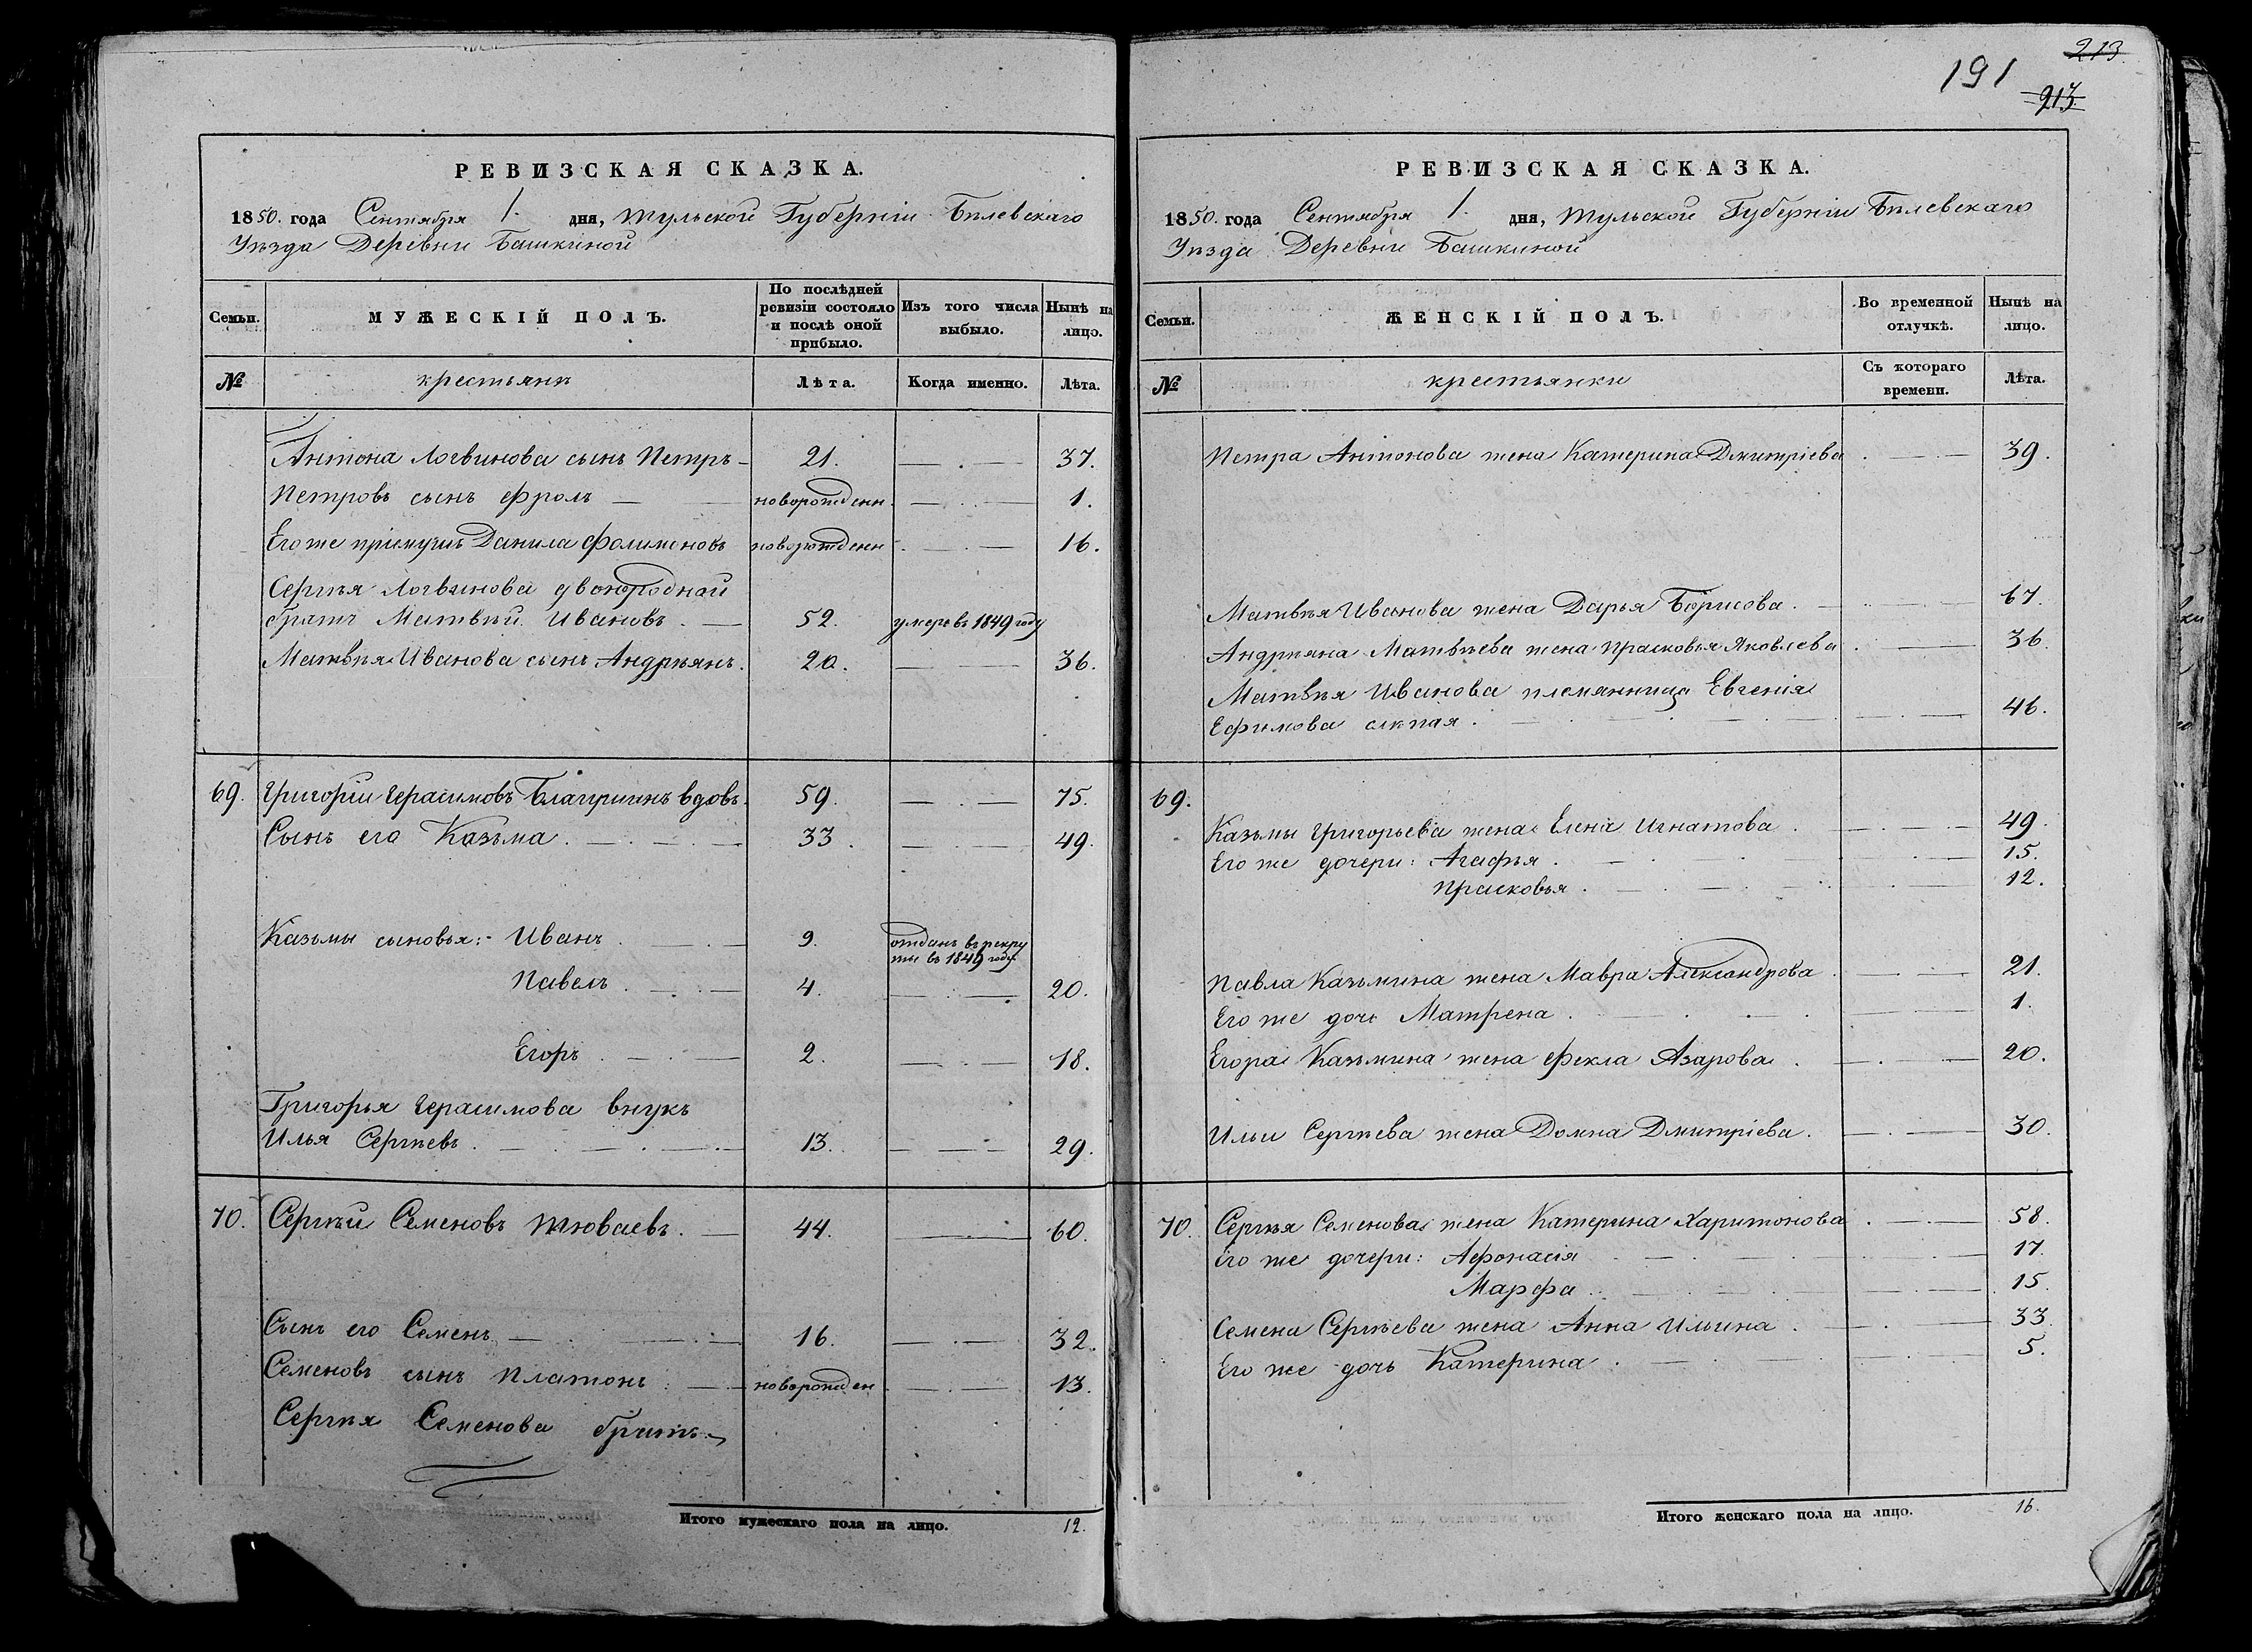 РЕВИЗСКАЯ СКАЗКА.
1850. года Сентября 1. дня, Тульской Губерніи Бѣлевскаго
Уѣзда Деревни Башкиной
Семьи. МУЖЕСКІЙ ПОЛЪ. По послѣдней ревизіи состояло и послѣ оной прибыло. Изъ того числа выбыло. Нынѣ на лицо.
№ крестьянъ Лѣта. Когда именно. Лѣта.
Антона Логвинова сынъ Петръ 21. 37.
Петровъ сынъ Фролъ новорожденн. 1.
Его же пріемышъ Данила Фолимоновъ новорожденн 16.
Сергѣя Логвинова двоюродной
братъ Матвѣй Ивановъ. 52. умеръ въ 1849 году
Матвѣя Иванова сынъ Андрѣянъ. 20. 36.
69. Григорій Герасимовъ вдовъ. 59. 75.
Сынъ его Казьма. 33. 49.
Казьмы сыновья: Иванъ. 9. отданъ въ рекру
ты въ 1849 году.
Павелъ. 4. 20.
Егоръ. 2. 18.
Григорья Герасимова внукъ
Илья Сергѣевъ. 13. 29.
70. Сергѣй Семеновъ 44. 60.
Сынъ его Семенъ 16. 32.
Семеновъ сынъ Платонъ новорожден. 13.
Сергѣя Семенова братъ
Итого мужескаго пола на лицо. 12.
213.
191
213.
РЕВИЗСКАЯ СКАЗКА.
1850. года Сентября 1. дня, Тульской Губерніи Бѣлевскаго
Уѣзда Деревни Башкиной
Семьи. ЖЕНСКІЙ ПОЛЪ. Во временной отлучкѣ. Нынѣ на лицо.
№ крестьянки Съ котораго времени. Лѣта.
Петра Антонова жена Катерина Дмитріева 39.
Матвѣя Иванова жена Дарья Борисова. 67.
Андрѣяна Матвѣева жена Прасковья Яковлева 36.
Матвѣя Иванова племянница Евгенія
Ефимова слѣпая. 46.
69.
Казьмы Григорьева жена Елена Игнатова. 49.
Его же дочери: Агафья. 15.
Прасковья. 12.
Павла Казьмина жена Мавра Александрова. 21.
Его же дочь Матрена. 1.
Егора Казьмина жена Фекла Азарова. 20.
Ильи Сергѣева жена Домна Дмитріева. 30.
70. Сергѣя Семенова жена Катерина Харитонова 58.
Его же дочери: Афонасія 17.
Марфа. 15.
Семена Сергѣева жена Анна Ильина. 33.
Его же дочь Катерина. 5.
Итого женскаго пола на лицо. 16.